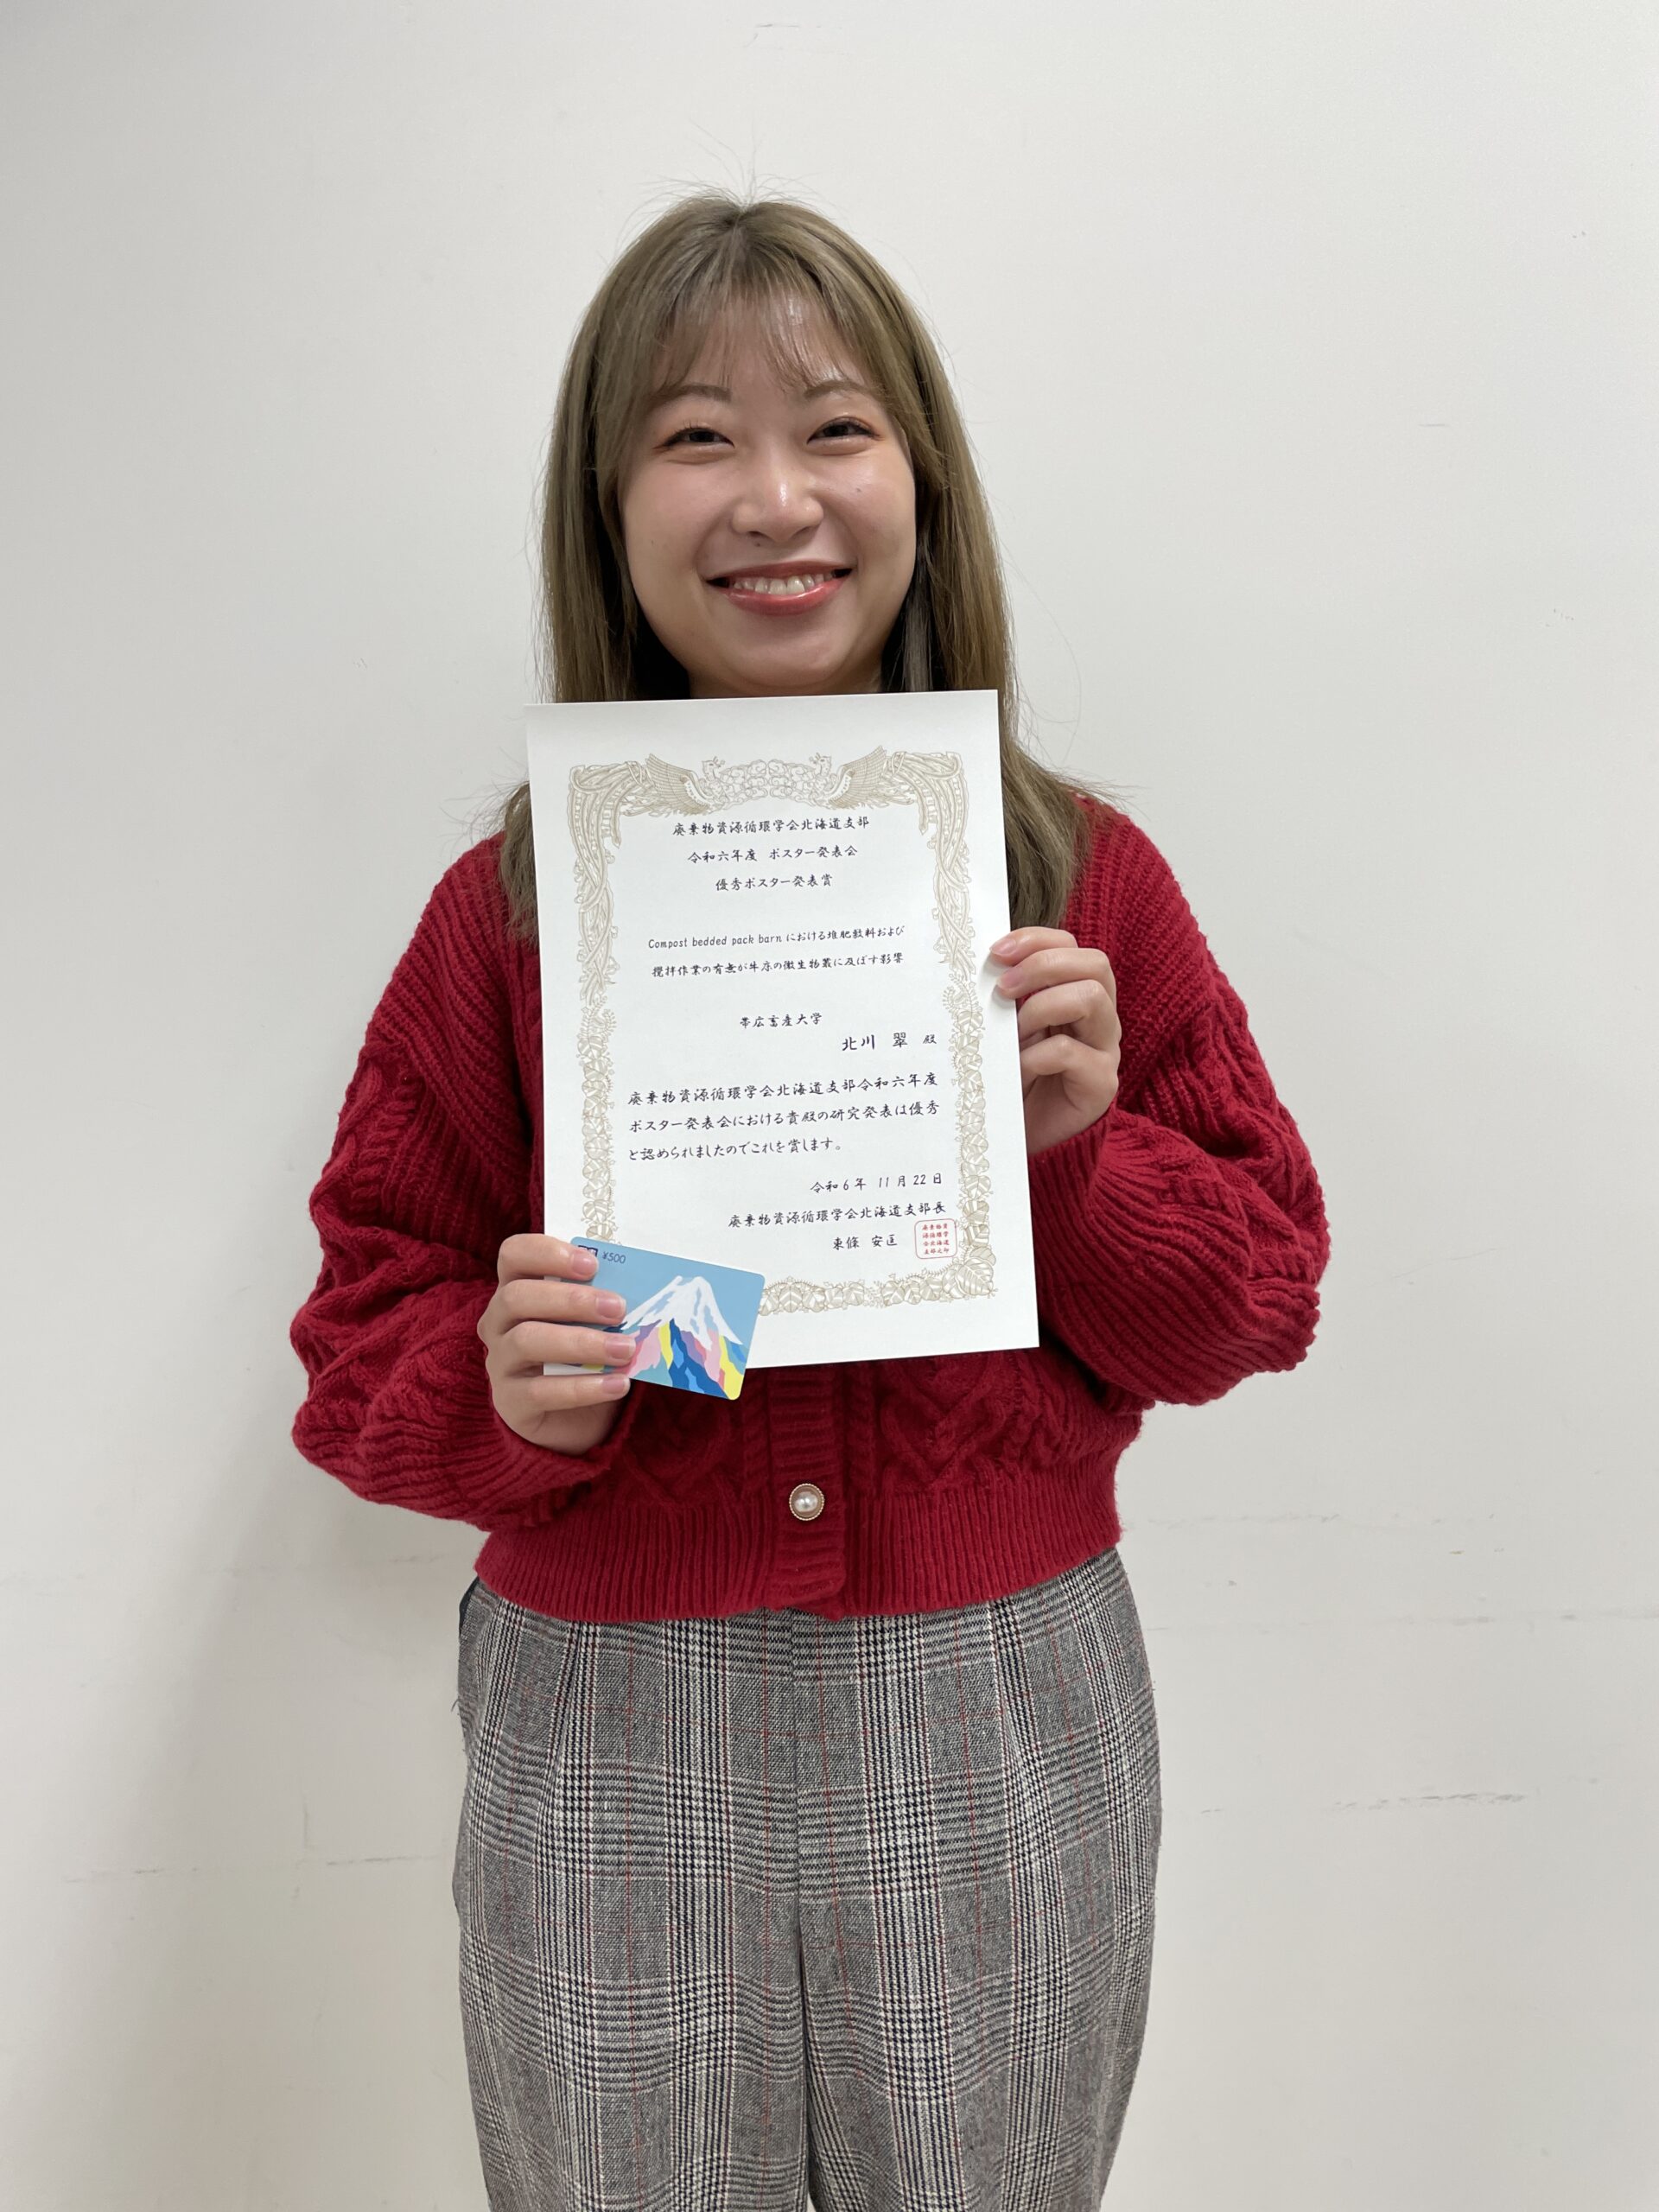 廃棄物資源循環学会北海道支部
令和六年度 ポスター発表会
優秀ポスター発表賞
Compost bedded pack barn における堆肥敷料および
撹拌作業の有無が牛床の微生物叢に及ぼす影響
帯広畜産大学
北川 翠 殿
廃棄物資源循環学会北海道支部令和六年度
ポスター発表会における貴殿の研究発表は優秀
と認められましたのでこれを賞します。
令和6年 11月22日
廃棄物資源循環学会北海道支部長
東條 安匡
廃棄物資
源循環学
会北海道
支部之印
¥500